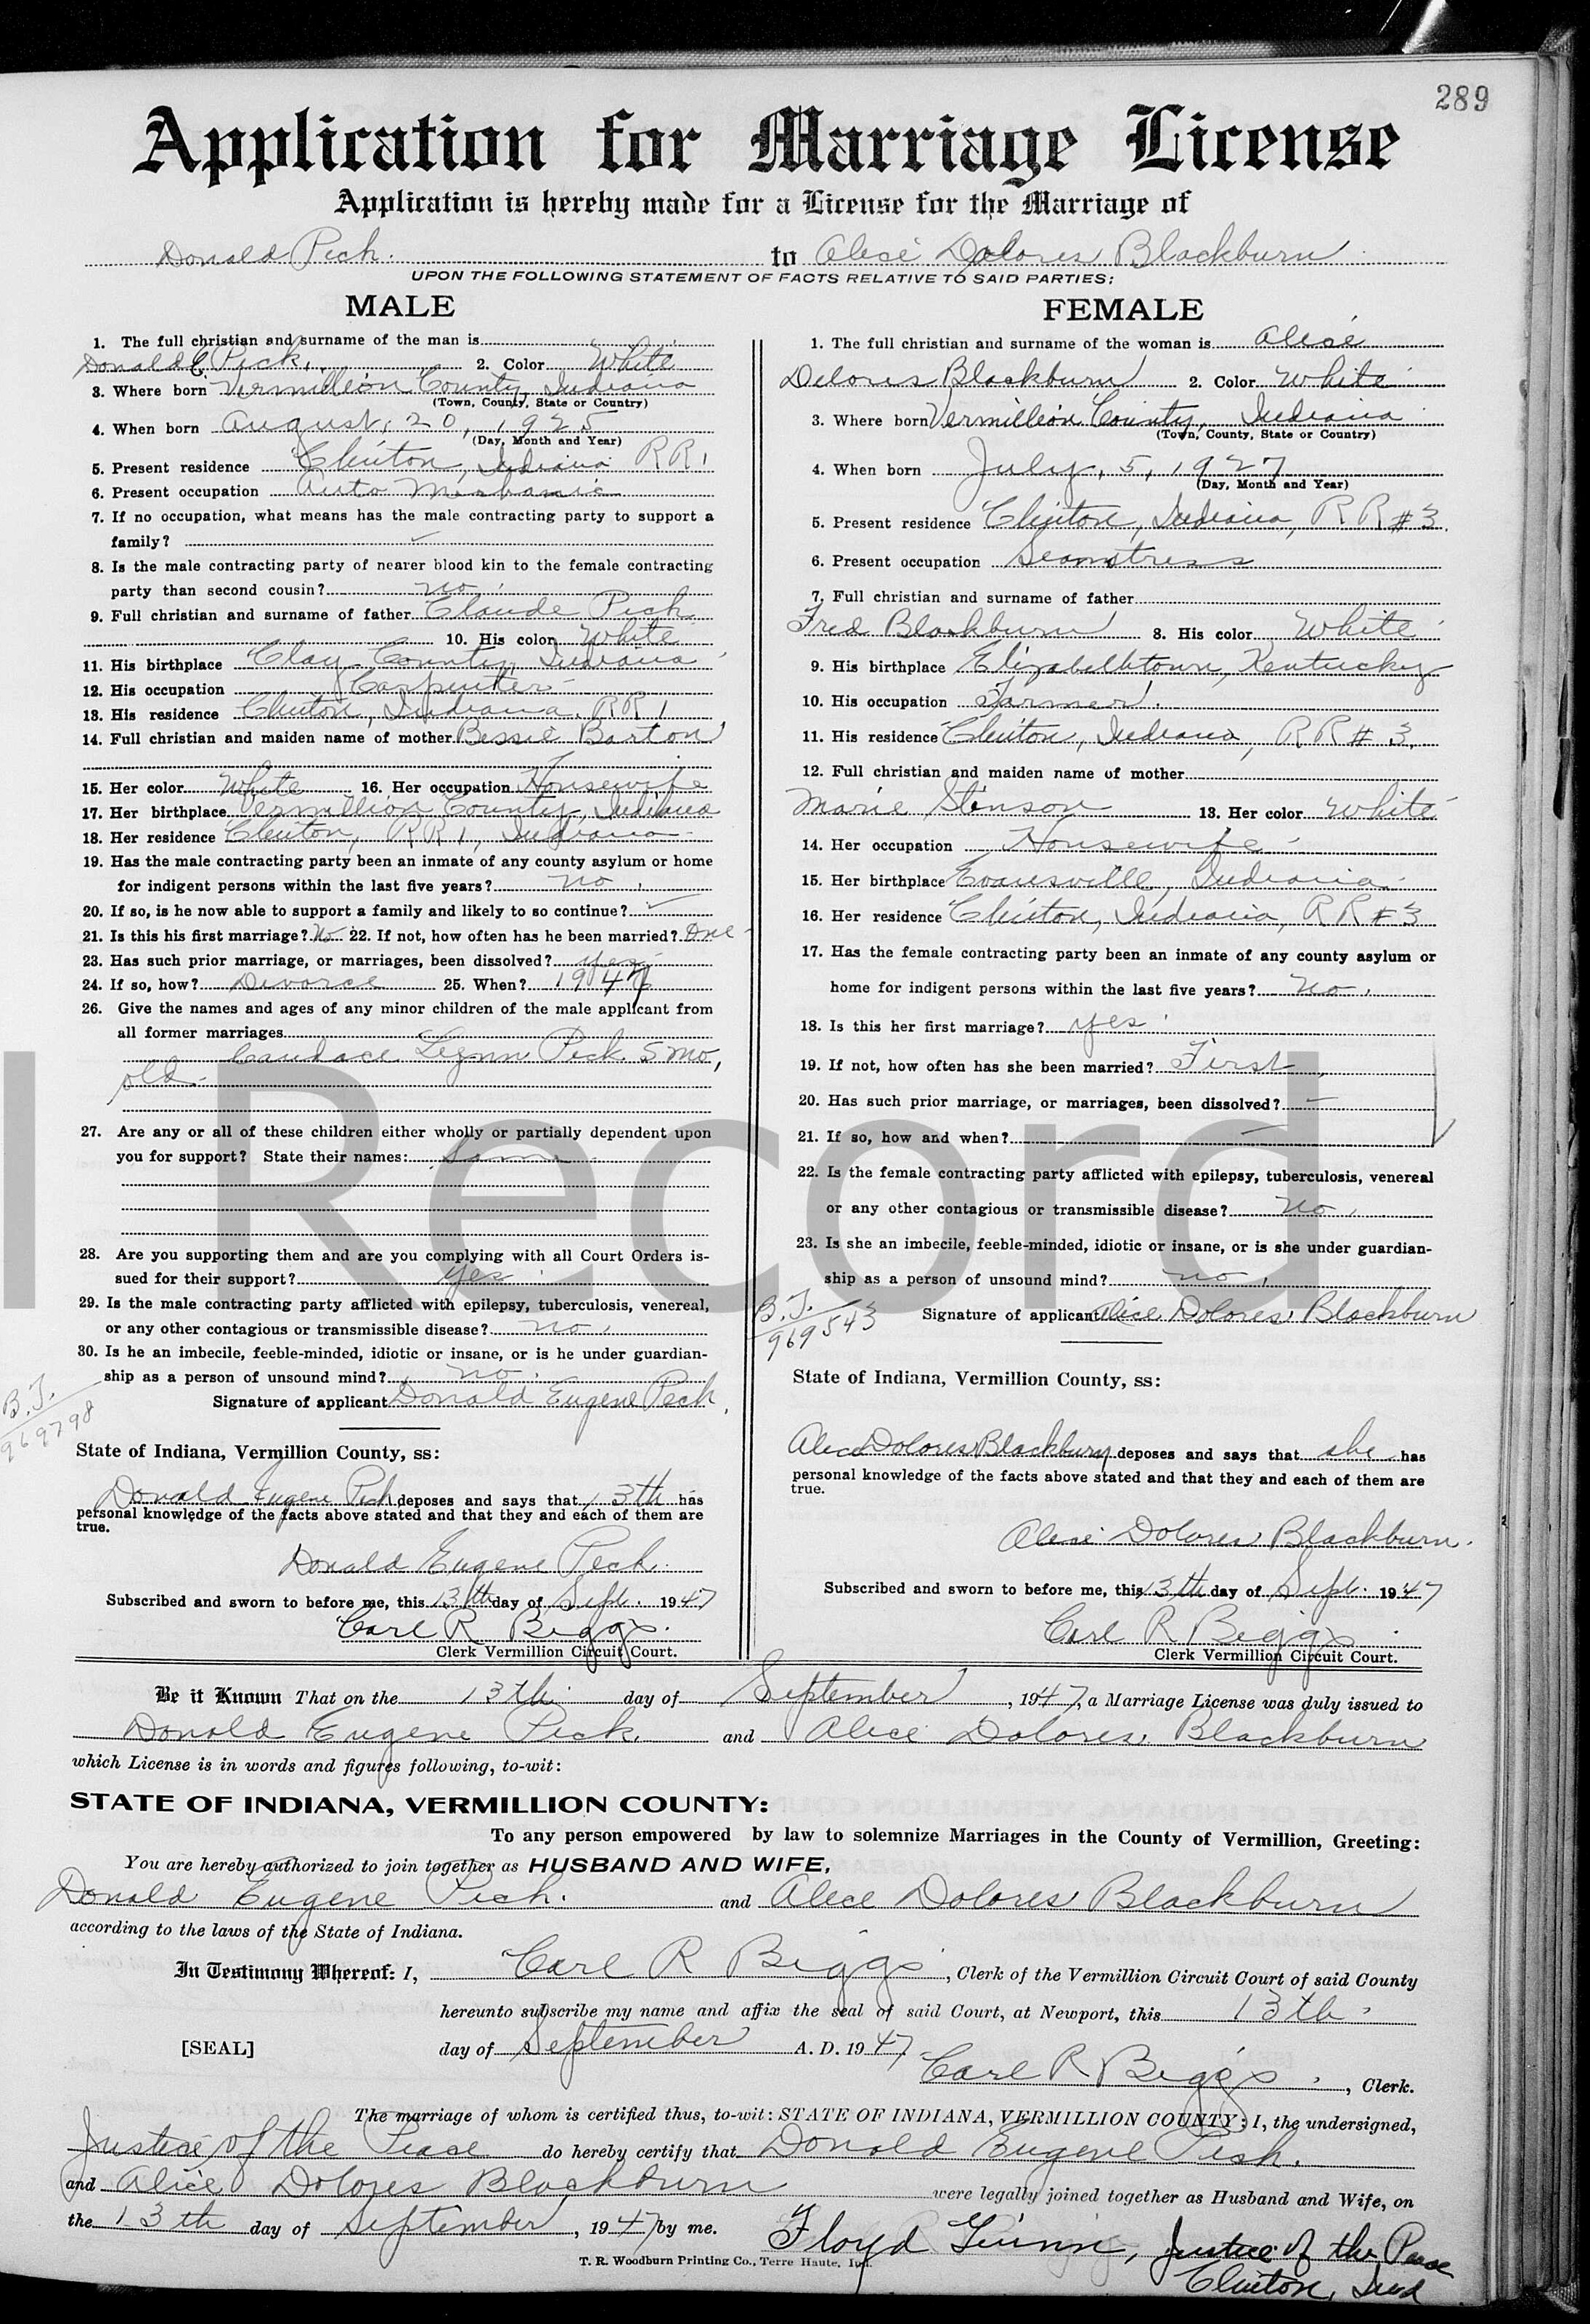 289
Application for Marriage License
Application is hereby made for a License for the Marriage of
Donald Peck. to Alice Dolores Blackburn
UPON THE FOLLOWING STATEMENT OF FACTS RELATIVE TO SAID PARTIES:
MALE
1. The full christian and surname of the man is
Donald E Peck. 2. Color White
3. Where born Vermillion County, Indiana
(Town, County, State or Country)
4. When born August, 20, 1925
(Day, Month and Year)
5. Present residence Clinton, Indiana RR 1
6. Present occupation Auto Mechanic
7. If no occupation, what means has the male contracting party to support a
family? ✓
8. Is the male contracting party of nearer blood kin to the female contracting
party than second cousin? no.
9. Full christian and surname of father Claude Peck
10. His color White
11. His birthplace Clay County Indiana
12. His occupation Carpenter
13. His residence Clinton, Indiana. RR 1
14. Full christian and maiden name of mother Bessie Barton
15. Her color White 16. Her occupation Housewife
17. Her birthplace Vermillion County, Indiana
18. Her residence Clinton, RR 1, Indiana
19. Has the male contracting party been an inmate of any county asylum or home
for indigent persons within the last five years? no.
20. If so, is he now able to support a family and likely to so continue? ✓
21. Is this his first marriage? No 22. If not, how often has he been married? One
23. Has such prior marriage, or marriages, been dissolved? yes
24. If so, how? Divorce 25. When? 1947
26. Give the names and ages of any minor children of the male applicant from
all former marriages
Candace Lynn Peck. 5 mo,
old.
27. Are any or all of these children either wholly or partially dependent upon
you for support? State their names: Same
28. Are you supporting them and are you complying with all Court Orders is-
sued for their support? yes
29. Is the male contracting party afflicted with epilepsy, tuberculosis, venereal,
or any other contagious or transmissible disease? no.
30. Is he an imbecile, feeble-minded, idiotic or insane, or is he under guardian-
ship as a person of unsound mind? no.
Signature of applicant Donald Eugene Peck,
B.T.
969798
State of Indiana, Vermillion County, ss:
Donald Eugene Peck deposes and says that 13th has
personal knowledge of the facts above stated and that they and each of them are
true.
Donald Eugene Peck.
Subscribed and sworn to before me, this 13th day of Sept. 1947
Carl R Biggs.
Clerk Vermillion Circuit Court.
FEMALE
1. The full christian and surname of the woman is Alice
Deloris Blackburn 2. Color White
3. Where born Vermillion County, Indiana
(Town, County, State or Country)
4. When born July, 5, 1927
(Day, Month and Year)
5. Present residence Clinton, Indiana, RR # 3.
6. Present occupation Seamstress
7. Full christian and surname of father
Fred Blackburn 8. His color White
9. His birthplace Elizabethtown, Kentucky
10. His occupation Farmer.
11. His residence Clinton, Indiana, RR # 3.
12. Full christian and maiden name of mother
Marie Stinson 13. Her color White
14. Her occupation Housewife
15. Her birthplace Evansville, Indiana.
16. Her residence Clinton, Indiana, RR # 3
17. Has the female contracting party been an inmate of any county asylum or
home for indigent persons within the last five years? No.
18. Is this her first marriage? yes
19. If not, how often has she been married? First
20. Has such prior marriage, or marriages, been dissolved? —
21. If so, how and when? —
22. Is the female contracting party afflicted with epilepsy, tuberculosis, venereal
or any other contagious or transmissible disease? no.
23. Is she an imbecile, feeble-minded, idiotic or insane, or is she under guardian-
ship as a person of unsound mind? no.
B.T.
969543
Signature of applicant Alice Dolores Blackburn
State of Indiana, Vermillion County, ss:
Alice Dolores Blackburn deposes and says that she has
personal knowledge of the facts above stated and that they and each of them are
true.
Alice Dolores Blackburn.
Subscribed and sworn to before me, this 13th day of Sept. 1947
Carl R Biggs
Clerk Vermillion Circuit Court.
Be it Known That on the 13th day of September, 1947, a Marriage License was duly issued to
Donald Eugene Peck. and Alice Dolores Blackburn
which License is in words and figures following, to-wit:
STATE OF INDIANA, VERMILLION COUNTY:
To any person empowered by law to solemnize Marriages in the County of Vermillion, Greeting:
You are hereby authorized to join together as HUSBAND AND WIFE,
Donald Eugene Peck. and Alice Dolores Blackburn
according to the laws of the State of Indiana.
In Testimony Whereof: I, Carl R Biggs, Clerk of the Vermillion Circuit Court of said County
hereunto subscribe my name and affix the seal of said Court, at Newport, this 13th
[SEAL] day of September A. D. 1947
Carl R Biggs, Clerk.
The marriage of whom is certified thus, to-wit: STATE OF INDIANA, VERMILLION COUNTY: I, the undersigned,
Justice of the Peace do hereby certify that Donald Eugene Peck.
and Alice Dolores Blackburn were legally joined together as Husband and Wife, on
the 13th day of September, 1947 by me.
Floyd Guinn, Justice of the Peace
Clinton, Ind
T. R. Woodburn Printing Co., Terre Haute, Ind.
Record